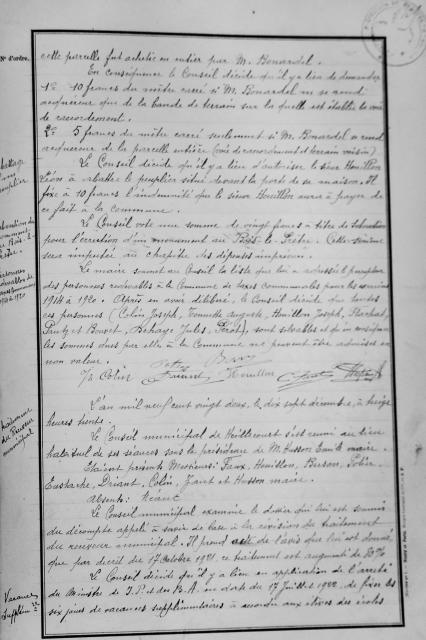 N° d'ordre.
cette parcelle fut achetée en entier par M. Bonardel.
En conséquence le Conseil décide qu'il y a lieu de demander
1° 10 francs du mètre carré si M. Bonardel ne se rend
acquéreur que de la bande de terrain sur laquelle est établie la voie
de raccordement.
2° 5 francs du mètre carré seulement si M. Bonardel se rend
acquéreur de la parcelle entière (voie de raccordement et terrain voisin)
Le Conseil décide qu'il y a lieu d'autoriser le sieur Houillon
Léon à abattre le peuplier situé devant la porte de sa maison. Il
fixe à 10 francs l'indemnité que le sieur Houillon aura à payer de
ce fait à la commune.
Le Conseil vote une somme de vingt francs à titre de subvention
pour l'érection d'un monument au Bois le Prêtre. Cette somme
sera imputée au chapitre des dépenses imprévues.
Le maire soumet au Conseil la liste que lui a adressée le percepteur
des personnes redevables à la Commune de taxes communales pour les années
1914 à 1920. Après en avoir délibéré, le Conseil décide que toutes
ces personnes (Colin Joseph, Auguste, Houillon Joseph,
et Bouvet, Jules,), sont solvables et qu'en conséquence
les sommes dues par elle à la Commune ne peuvent être admises en
non valeur.
Colin Houillon
L'an mil neuf cent vingt deux, le dix sept décembre, à treize
heures trente.
Le Conseil municipal de s'est réuni au lieu
habituel de ses séances sous la présidence de M. Husson Emile maire.
Etaient présents Messieurs: Houillon, Husson,
Eustache, Driant, Colin, et Husson maire.
Absents: Néant
Le Conseil municipal examine le dossier qui lui est soumis
du décompte appelé à servir de base à la révision du traitement
du receveur municipal. Il prend acte de l'avis qui lui est donné,
que par décret du 17 Octobre 1921, ce traitement est augmenté de
Le Conseil décide qu'il y a lieu en application de l'arrêté
du Ministre de I. P. et des B. A. en date du 17 Juillet 1922, de fixer les
six jours de vacances supplémentaires à accorder aux élèves des écoles
peuplier
traitement
du Receveur
municipal
Vacances
Supplém<sup>res</sup>